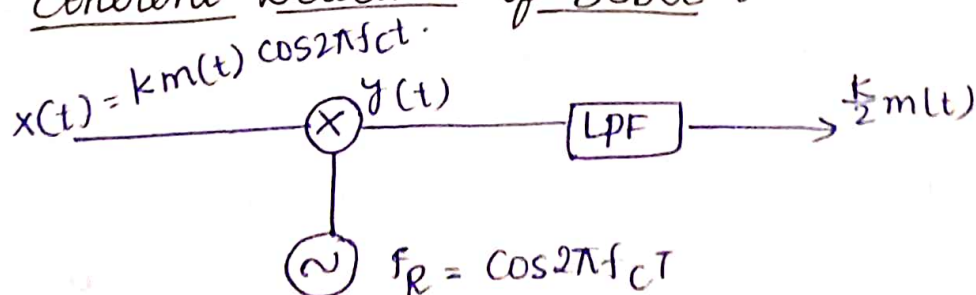 x(t) = km(t) cos2πfct.
y(t)
×
LPF
k/2 m(t)
~ fR = cos2πfcT